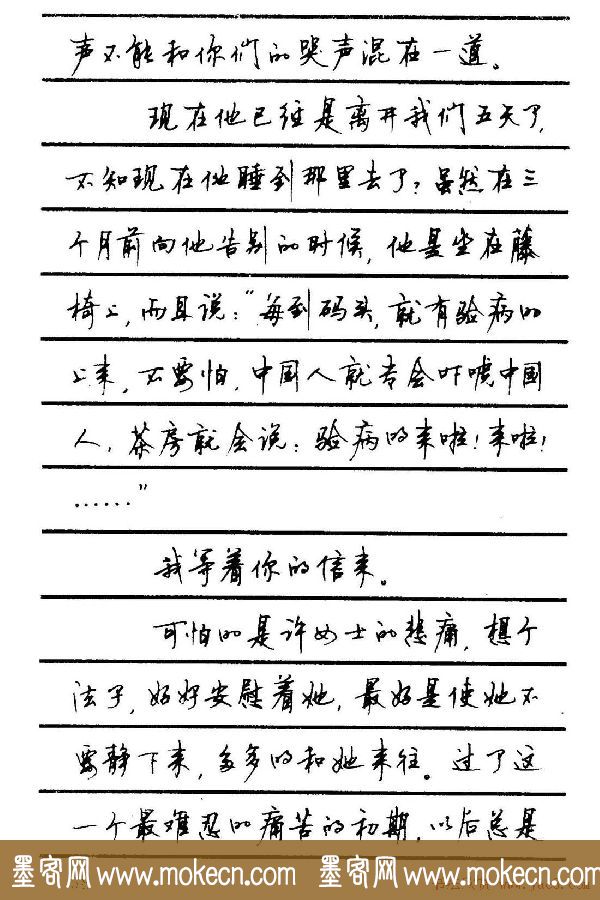 声不能和你们的哭声混在一道。
现在他已经是离开我们五天了,
不知现在他睡到那里去了?虽然在三
个月前向他告别的时候,他是坐在藤
椅上,而且说:“每到码头,就有验病的
上来,不要怕,中国人就专会吓唬中国
人,茶房就会说:验病的来啦!来啦!
……”
我等着你的信来。
可怕的是许女士的悲痛,想个
法子,好好安慰着她,最好是使她不
要静下来,多多的和她来往。过了这
一个最难忍的痛苦的初期,以后总是
墨客网 www.mokecn.com 墨客网 www.mokecn.com